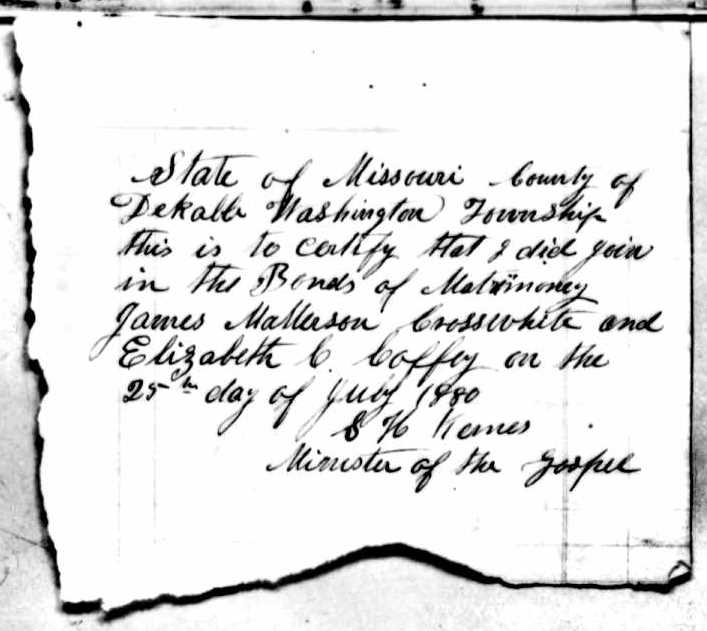 State of Missouri County of
DeKalb Washington Township
this is to certify that I did join
in the Bonds of Matrimoney
James Matterson Crosswhite and
Elizabeth C. Coffey on the
25th day of July 1880
S H
Minister of the Gospel